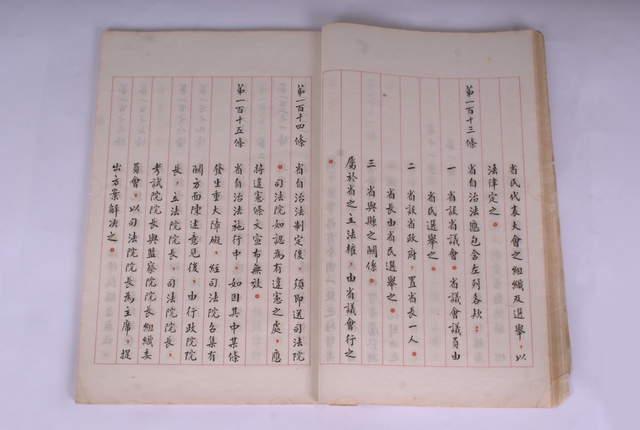 省民代表大會之組織及選舉，以
法律定之。
第一百十三條 省自治法應包含左列各款：
一 省設省議會。省議會議員由
省民選舉之。
二 省設省政府，置省長一人。
省長由省民選舉之。
三 省與縣之關係。
屬於省之立法權，由省議會行之
。
第一百十四條 省自治法制定後，須即送司法院
。司法院如認為有違憲之處，應
將違憲條文宣布無效。
第一百十五條 省自治法施行中，如因其中某條
發生重大障礙，經司法院召集有
關方面陳述意見後，由行政院院
長，立法院院長，司法院院長，
考試院院長與監察院院長組織委
員會。以司法院院長為主席，提
出方案解決之。